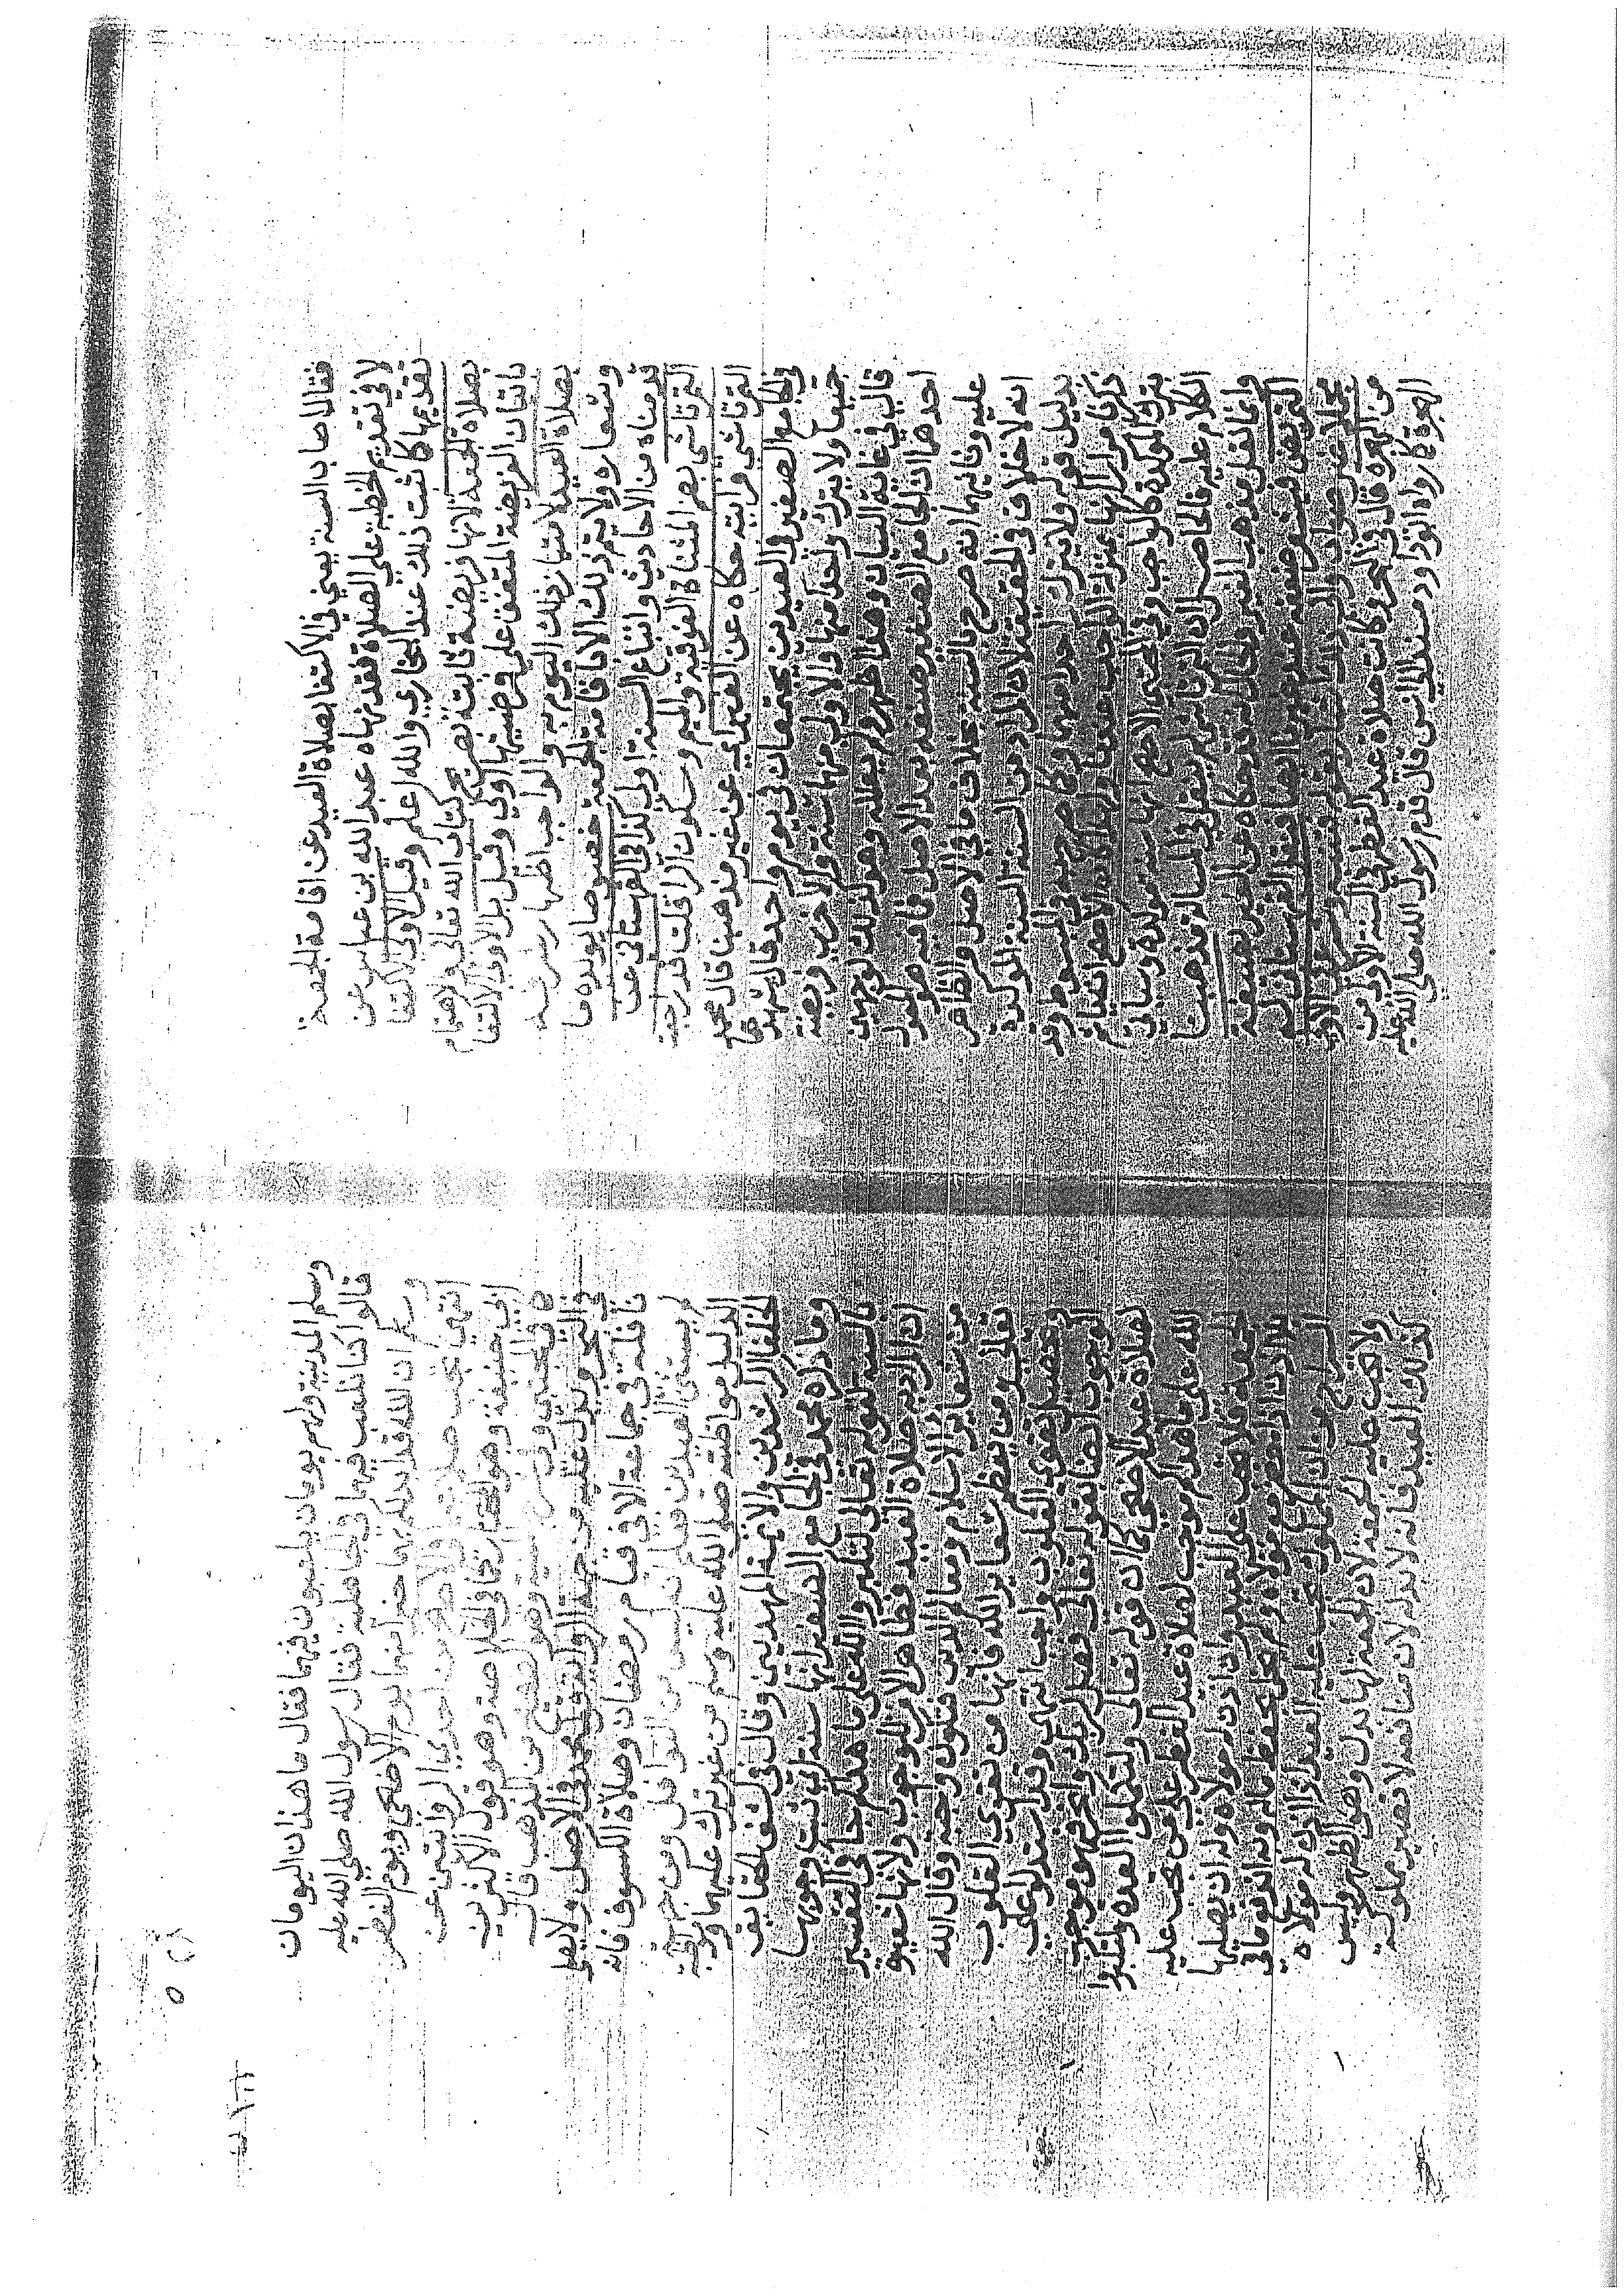 فقال اصاب السنة يعني في الاكتفا بصلاة العيد عن اقامة الجمعة
لا في تقديم الخطبة علي الصلاة فقد نهاه عبد الله بن عباس عن
تقديمها كما ثبت ذلك عند البخاري والله اعلم وقيل الاولى الاكتفا
بصلاة الجمعة لانها فريضة ثابتة نص كتاب الله تعالى والاهتمام
باتيان الفريضة المتفق علي فرضيتها اولى وقيل بل الاولى الاكتفا
بصلاة العيد لامتياز ذلك اليوم به والواجب اظهار شرفه
وشعاره ولا يتم ذلك الا باقامة الجمعة خصوصا يويده ما
قدمناه من الاحاديث واتباع السنة اولى كذا في القهستاني عن
التمرتاشي بضم المثناة الفوقية والميم وسكون الرا قلت قد راجعت
التمرتاشي فرايته حكاه عن الغير اي عن غير مذهبنا قال محمد
في الجامع الصغير في العيدين يجتمعان في يوم واحد قال يشهدهما
جميعا ولا يترك واحدا منهما والاولى منهما سنة والاخرى فريضة
قال في غاية البيان وهذا اظهر ولم يعلله وهو كذلك لوجهين
احدهما ان الجامع الصغير صنفه بعد الاصل فما فيه هو المعول
عليه وثانيهما انه صرح بالسنة بخلاف ما في الاصل والظاهر
انه لا خلاف في الحقيقة لان المراد من السنة السنة الموكدة
بدليل قوله ولا يترك واحدا منهما وكما صرح به في المبسوط وقد
ذكرنا مرارا انها بمنزلة الواجب عندنا ولهذا كان الاصح انه ياثم
بترك الموكدة كالواجب وفي المجتبى الاصح انها سنة موكدة وسياتي
الكلام عليه فالحاصل ان التمرتاشي لم ينقل في المسالة مذهبنا
وانما نقل مذهب الغير والحال انه قد حكاه عن الغير بصيغة
التمريض
من الهجرة قال في البحر وكانت صلاة عيد الفطر في السنة الاولى من
الهجرة كما رواه ابو داود مسندا الى انس قال قدم رسول الله صلي الله عليه
وسلم المدينة ولهم يومان يلعبون فيهما فقال ما هذان اليومان
قالوا كنا نلعب فيهما في الجاهلية فقال رسول الله صلي الله عليه
وسلم ان الله قد ابدلكم بهما خيرا منهما يوم الاضحي ويوم الفطر
انتهى تجب صلاته في الاصح من احدي الروايتين عن
ابي حنيفة وهو المختار كما في الخلاصة وهو قول الاكثرين
كما في المجتبى وفي وهو الصحيح من المذهب قال
في البحر ويدل عليه من جهة الرواية قول محمد في الاصل ولا يصلي
نافلة في جماعة الا في قيام رمضان وصلاة الكسوف فانه
لم يستثن العيدين فعلم انه ليس من النوافل ومن جهة
الدليل مواظبته صلي الله عليه وسلم من غير ترك عليها وكذا
الخلفا الراشدين والائمة المهديين وقال في كشف الحقايق
وما ذكره محمد في الجامع الصغير انها سنة اي ثبت وجوبها
بالسنة لقوله تعالى لتكبروا الله على ما هداكم جا في التفسير
ان المراد به صلاة العيد فظاهر الامر للوجوب ولانها شعيرة
من شعاير الاسلام ومعالم الدين فتكون واجبة وقال الله
تعالى ومن يعظم شعاير الله فانها من تقوي القلوب
وتحصيل تقوي القلوب واجب انتهى وقد استدلوا علي
الوجوب ايضا بقوله تعالى فصل لربك وانحر فهو موجب
لصلاة عيد الاضحي كما ان قوله تعالى ولتكملوا العدة ولتكبروا
الله علي ما هداكم موجب لصلاة عيد الفطر علي من تجب عليه
الجمعة فلا تجب علي العبد وان اذن له مولاه وله ان يصليها
بلا اذن ان حضر مع مولاه ولم يخل بحفظ ماله وله اذ قوما في
السراج من ان المملوك تجب عليه العيد اذا اذن له مولاه
ولا تجب عليه الجمعة لان الجمعة لها بدل وهو الظهر وليس
كذلك العيد فانه لا بدل له لان منافعه لا تصير مملوكة